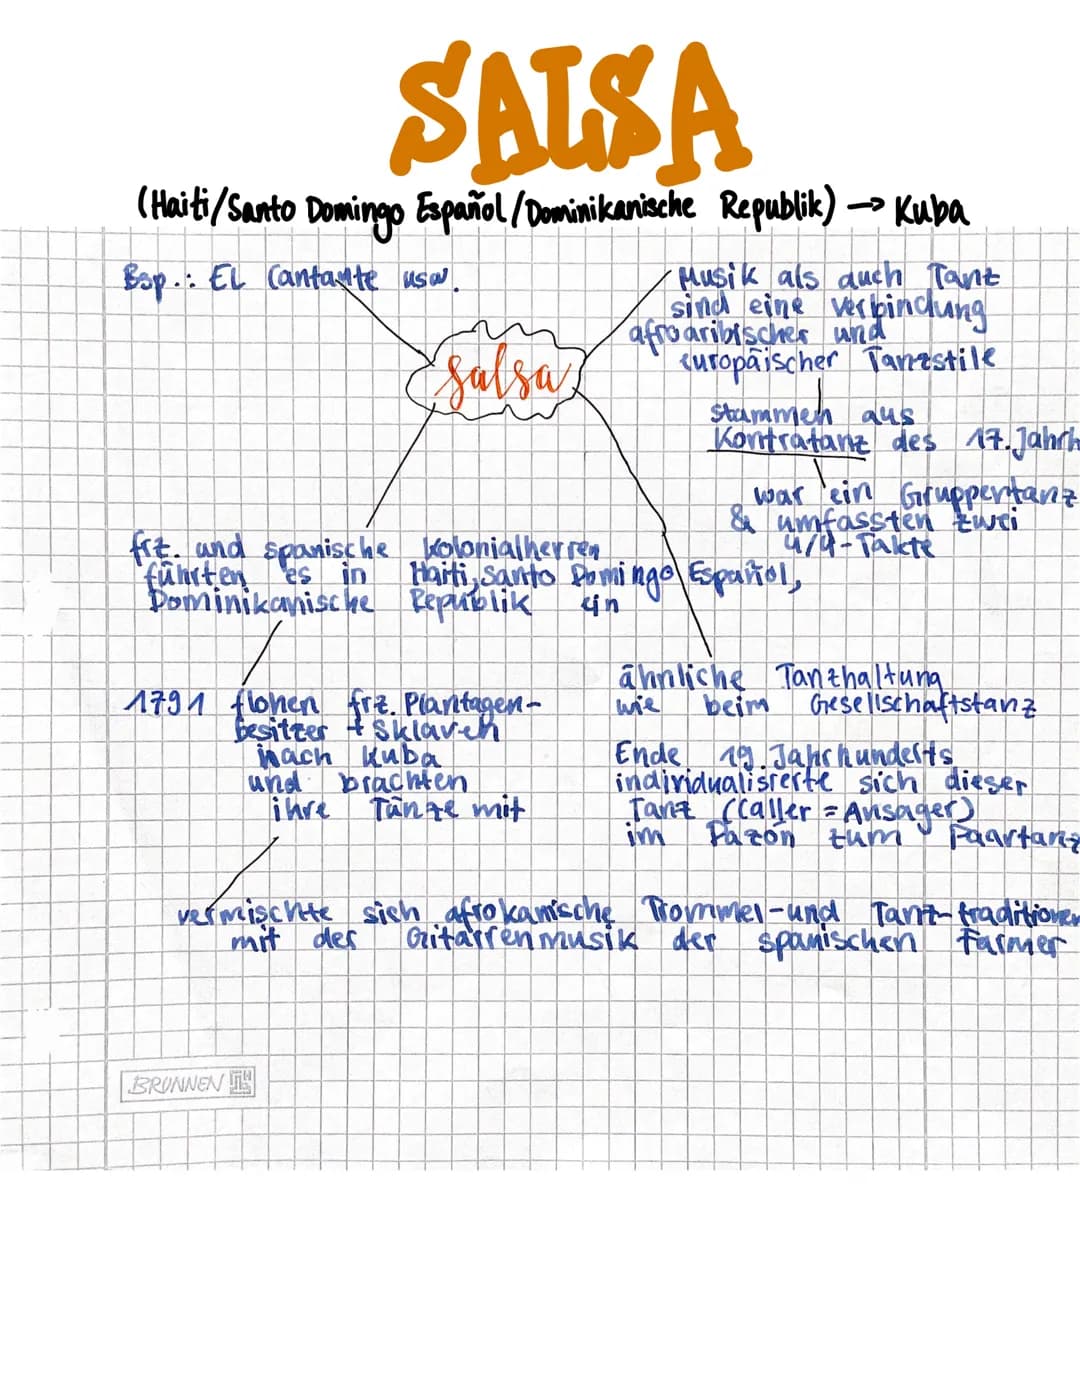 SALSA
(Haiti/Santo Domingo Español/Dominikanische Republik) → Kuba
Bsp.: EL Cantante usw.
Musik als auch Tanz
sind eine verbindung
afroaribischer und
europäischer Tanzstile
salsa
stammen aus
Kontratanz des 17. Jahrh
war ein Gruppentanz
& umfassten zwei
4/4-Takte
frz. und spanische Kolonialherren
führten es in Haiti, Santo Domingo Español,
Dominikanische Republik ein
ähnliche Tanzhaltung
wie beim Gesellschaftstanz
1791 flohen frz. Plantagen-
besitzer + Sklaven
nach Kuba
und brachten
ihre Tänze mit
Ende 19. Jahrhunderts
individualisierte sich dieser
Tanz (Caller = Ansager)
im Pazón zum Paartanz
vermischte sich afrokanische Trommel-und Tanz-traditionen
mit der Gitarrenmusik der spanischen Farmer
BRUNNEN